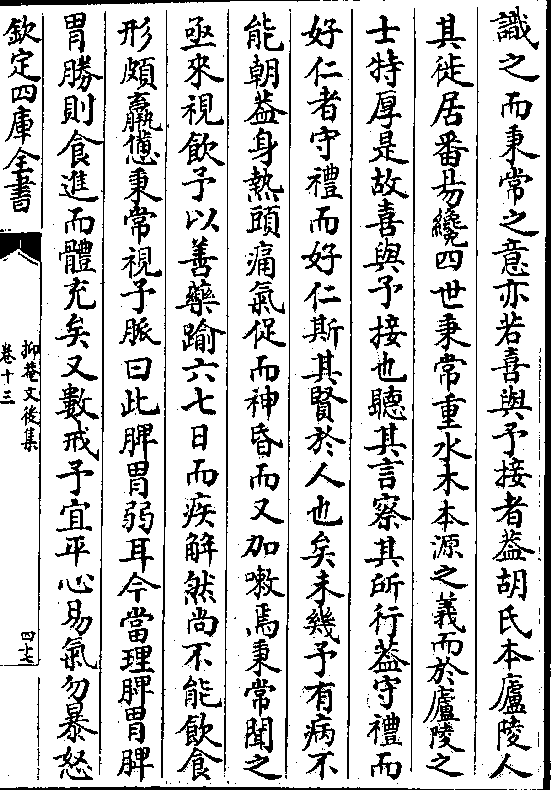 識之而秉常之意亦若喜與予接者葢胡氏本廬陵人
其徙居番昜纔四世秉常重水木本源之義而於廬陵之
士特厚是故喜與予接也聽其言察其所行葢守禮而
好仁者守禮而好仁斯其賢於人也矣未幾予有病不
能朝葢身熱頭痛氣促而神昏而又加嗽焉秉常聞之
亟來視飲予以善藥踰六七日而疾解然尚不能飲食
形頗羸憊秉常視予脈曰此脾胃弱耳今當理脾胃脾
胃勝則食進而體充矣又數戒予宜平心易氣勿暴怒
欽定四庫全書
抑菴文後集
卷十三
四十七